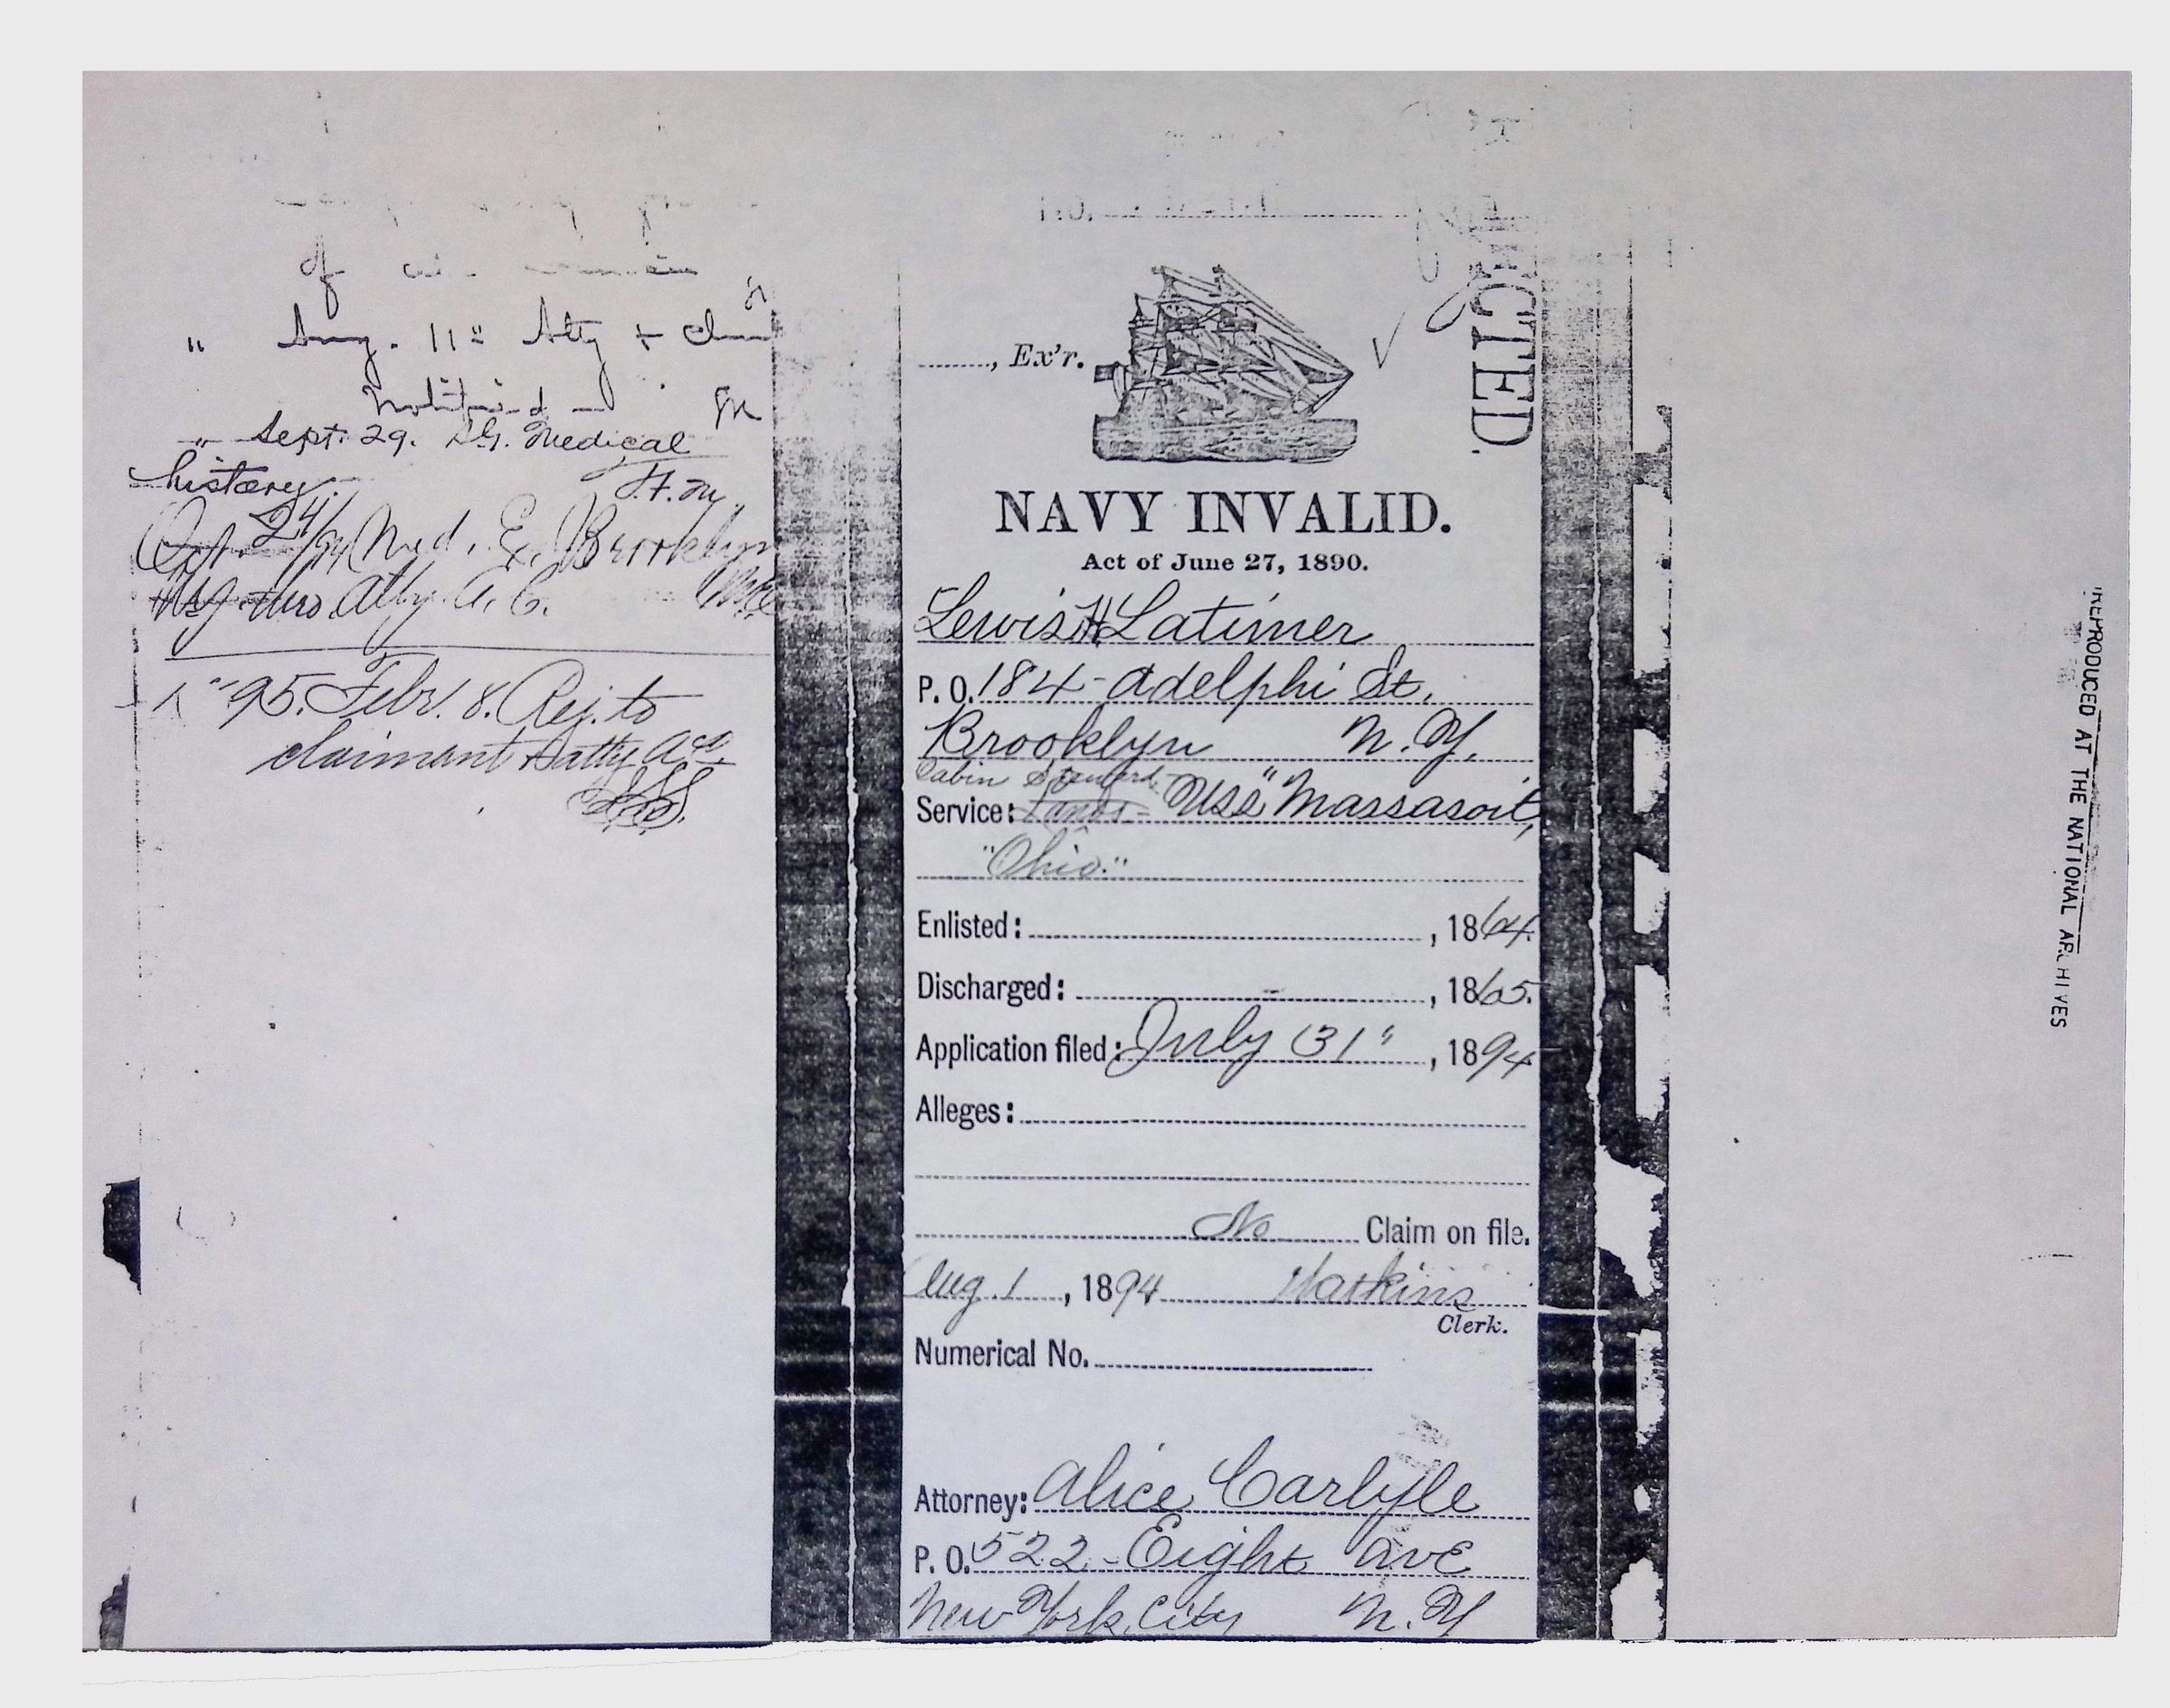 of
" Aug. 11" Atty &
Notified —
" Sept. 29. S.G. Medical
history.
Oct. 24/94 Med. Ex. Brooklyn
Atty. A. C.
'95. Febr. 8. Rej. to
claimant & atty
No.
REJECTED.
, Ex'r.
NAVY INVALID.
Act of June 27, 1890.
Lewis H Latimer
P. O. 184 - Adelphi St.
Brooklyn N. Y.
Cabin Steward
Service: Lands - USS "Massasoit,
"Ohio."
Enlisted: , 1864.
Discharged: , 1865.
Application filed: July 31" , 1894
Alleges:
No Claim on file.
Aug. 1 , 1894 Watkins
Clerk.
Numerical No.
Attorney: Alice Carlyle
P. O. 522 - Eight Ave
New York City N. Y
REPRODUCED AT THE NATIONAL ARCHIVES